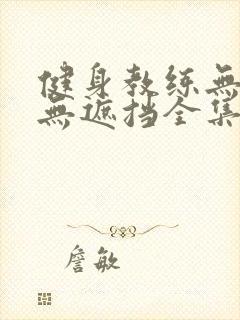 健身教练無
無遮挡全集
詹敏